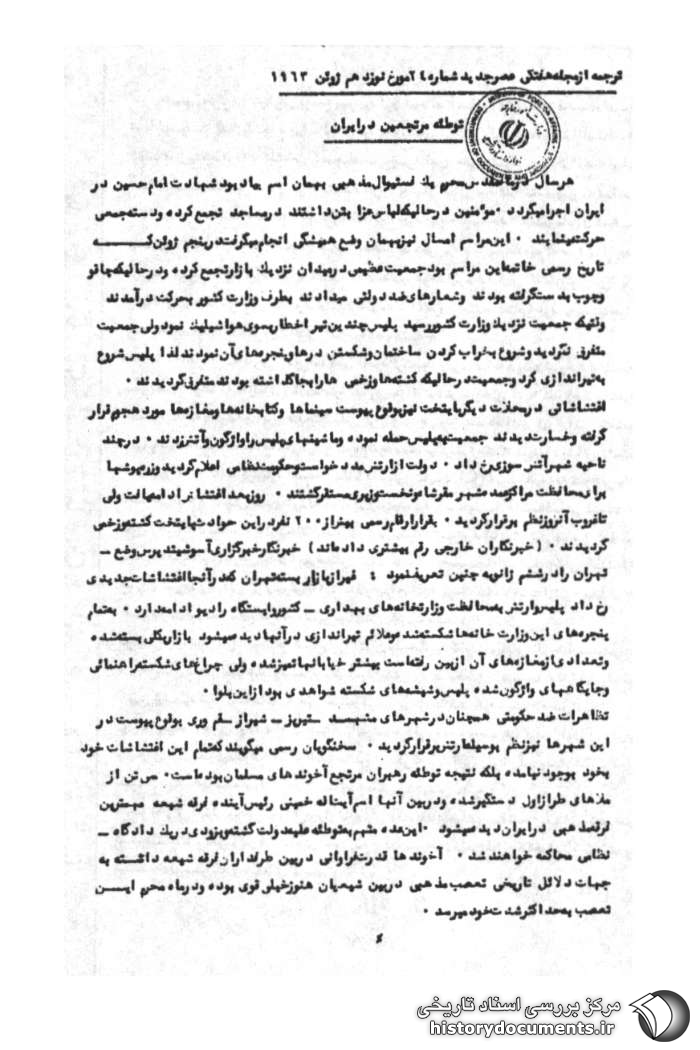 ترجمه ازمجله هفتگی عصرجدید شماره ٢٤ مورخ نوزدهم ژوئن ١٩٦٣
توطئه مرتجعین درایران
هرسال درماه مقدس محرم یك فستیوال مذهبی بهمان اسم بیاد بود شهادت امام حسین در
ایران اجرامیگردد ۰ مومنین درحالیکه لباس عزا بتن داشتند درمساجد تجمع کرده ودسته جمعی
حرکت مینمایند ۰ این مراسم امسال نیزبهمان وضع همیشگی انجام میگرفت درپنجم ژوئن که
تاریخ رسمی خاتمه این مراسم بود جمعیت عظیمی درمیدان نزدیك بازارتجمع کرده ودرحالیکه چاقو
وچوب بدستگرفته بودند وشعارهای ضد دولتی میدادند بطرف وزارت کشور بحرکت درآمدند
وقتیکه جمعیت نزدیك وزارت کشوررسید پلیس چندین تیر اخطاربسوی هواشیلیك نمود ولی جمعیت
متفرق نگردید وشروع بخراب کردن ساختمان وشکستن درهاوپنجره های آن نمودند لذا پلیس شروع
به تیراندازی کرد وجمعیت درحالیکه کشته ها وزخمی هارابجاگذاشته بودند متفرق گردیدند ۰
اغتشاشاتی درمحلات دیگرپایتخت نیزبوقوع پیوست سینماها وکتابخانه هاومغازه ها مورد هجوم قرار
گرفته وخسارت دیدند جمعیت به پلیس حمله نموده وماشینهای پلیس راواژگون وآتش زدند ۰ درچند
ناحیه شهرآتش سوزی رخ داد ۰ دولت ازارتش مدد خواست وحکومت نظامی اعلام گردید وزره پوشها
برای محافظت مراکزعمده شهر مقرشاه ونخست وزیری مستقرگشتند ۰ روزبعد اغتشاش ادامه یافت ولی
تاغروب آنروزنظم برقرارگردید ۰ بقرارارقام رسمی بیش از ٢٠٠ نفردراین حوادث پایتخت کشته وزخمی
گردیدند ۰ ( خبرنگاران خارجی رقم بیشتری داده اند ) خبرنگارخبرگزاری آسوشیتدپرس وضع ـ
تهران رادرششم ژانویه چنین تعریف نمود : غیرازبازار بسته تهران که درآنجااغتشاشات جدیدی
رخ داد پلیس وارتش به محافظت وزارتخانه های بهداری ـ کشوروایستگاه رادیو ادامه دارد ۰ به تمام
پنجره های این وزارت خانه ها شکسته شده وعلائم تیراندازی درآنهادیده میشود بازاربکلی بسته شده
وتعدادی ازمغازه های آن ازبین رفته است بیشتر خیابانهاتمیزشده ولی چراغهای شکسته راهنمائی
وجایگاههای واژگون شده پلیس وشیشه های شکسته شواهدی بود ازاین بلوا ۰
تظاهرات ضد حکومتی همچنان درشهرهای مشهد ـ تبریز ـ شیراز ـ قم وری بوقوع پیوست در
این شهرها نیزنظم بوسیله ارتش برقرارگردید ۰ سخنگویان رسمی میگویند که تمام این اغتشاشات خود
بخود بوجود نیامده بلکه نتیجه توطئه رهبران مرتجع آخوندهای مسلمان بوده است ۰ سی تن از
ملاهای طرازاول دستگیرشده ودربین آنها اسم آیت اله خمینی رئیس آینده فرقه شیعه مهمترین
فرقه مذهبی درایران دیده میشود ۰ این عده متهم به توطئه علیه دولت گشته وبزودی دریك دادگاه ـ
نظامی محاکمه خواهند شد ۰ آخوندها قدرت فراوانی دربین طرفداران فرقه شیعه داشته به
جهات دلائل تاریخی تعصب مذهبی دربین شیعیان هنوزخیلی قوی بوده ودرماه محرم ایـن
تعصب به حداکثرشدت خود میرسد ۰
مرکز بررسی اسناد تاریخی
historydocuments.ir